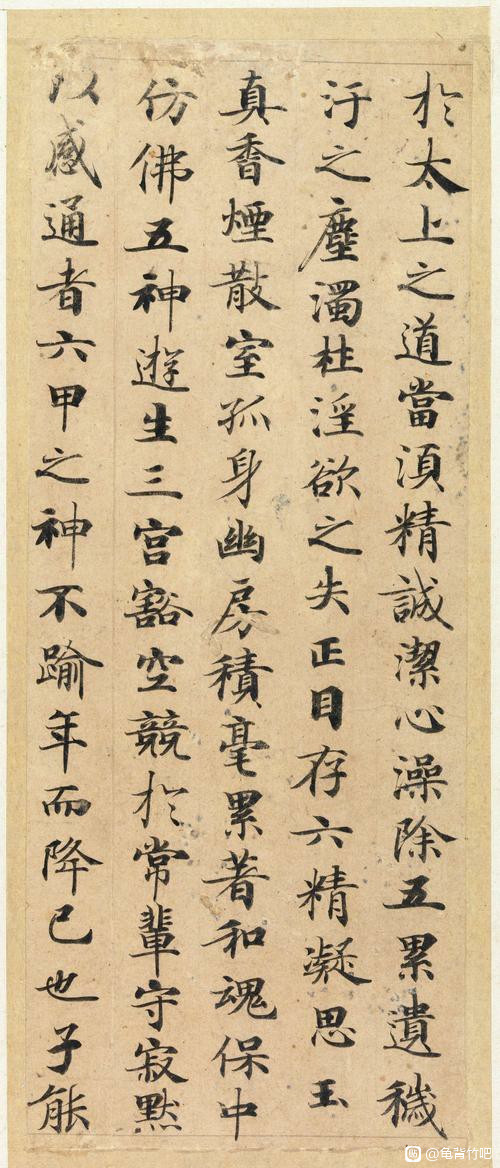 於太上之道當湏精誠潔心澡除五累遺穢
汙之塵濁杜淫欲之失正目存六精凝思玉
真香煙散室孤身幽房積毫累著和魂保中
仿佛五神遊生三宫豁空競於常輩守寂默
以感通者六甲之神不踰年而降已也子能
@龟背竹吧